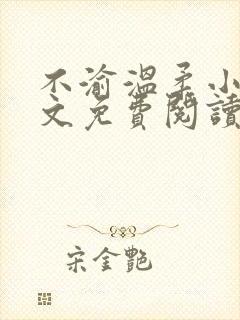 不渝溫柔小
文免費閱讀
宋金艷